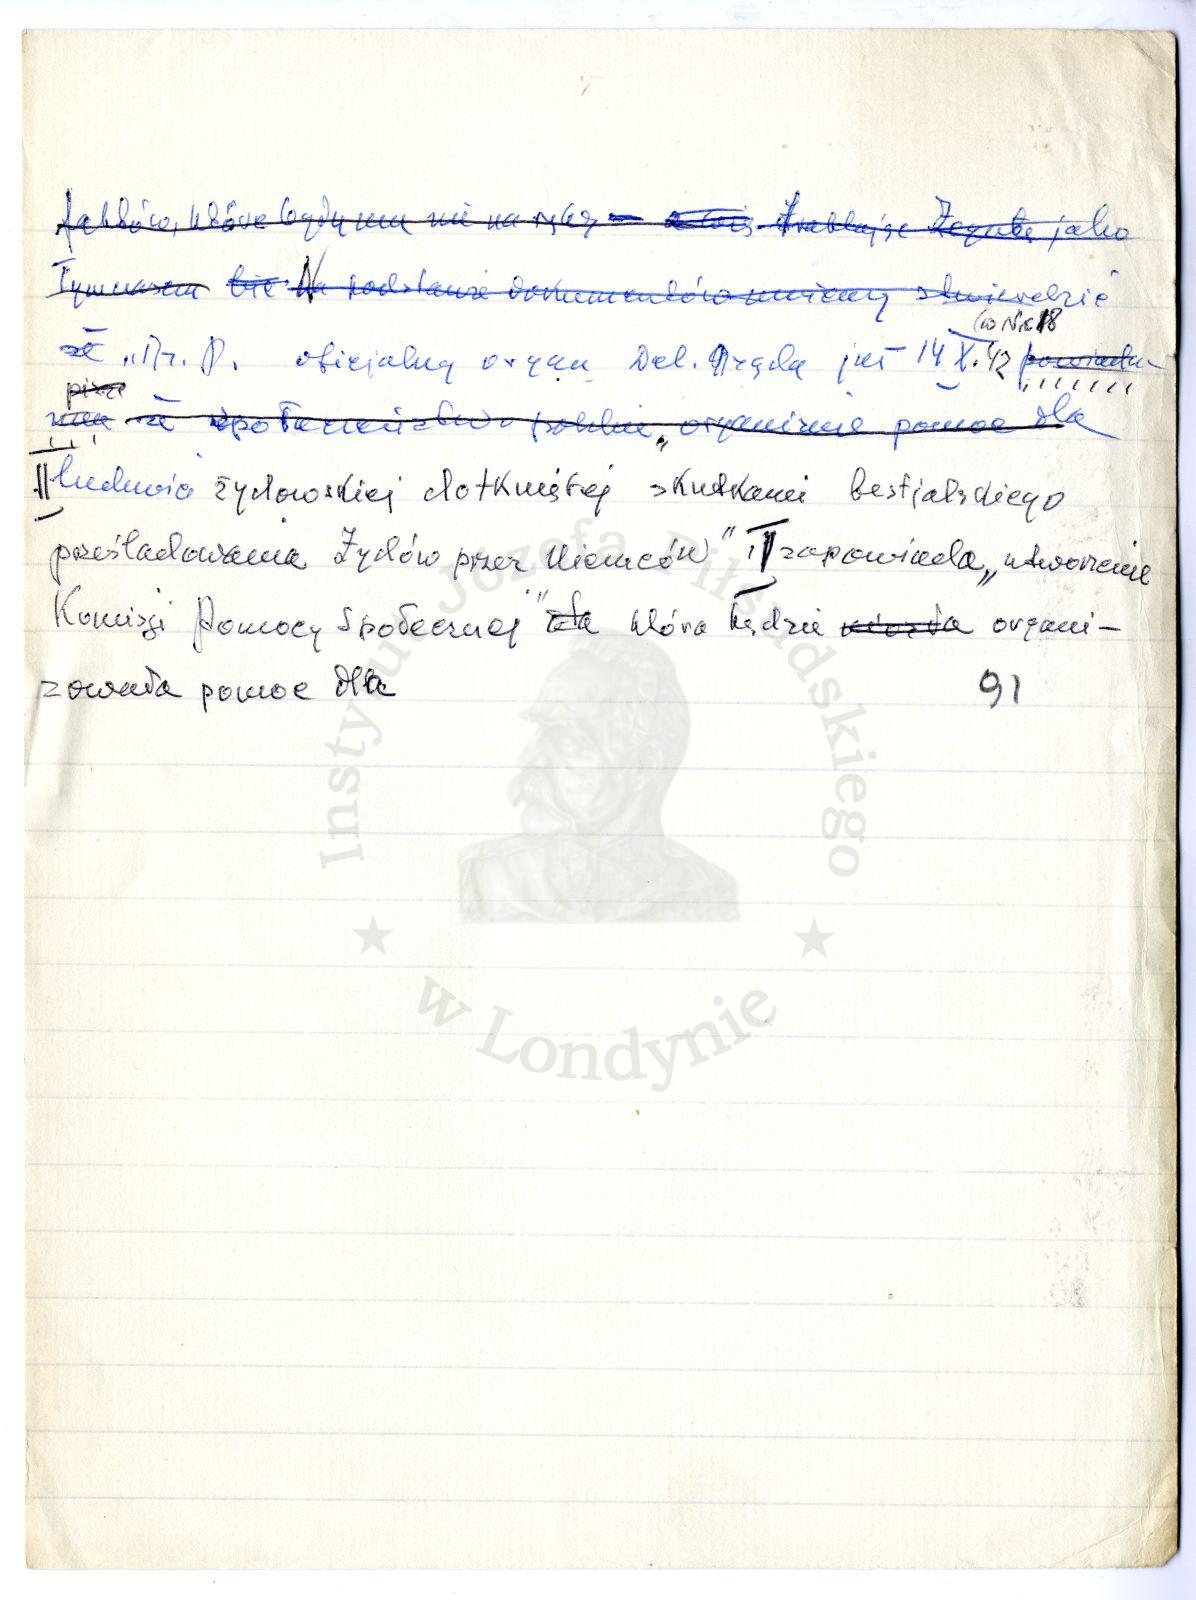 faktów, które były mu nie na rękę – Traktując Żegotę jako
Tymczasem Na podstawie dokumentów umiemy stwierdzić
(w Nr 18
że „Rz. P. oficjalny organ Del. Rządu już 14 X. 42 powiada-
pisze
mia że społeczeństwo polskie „organizuje pomoc dla
ludności żydowskiej dotkniętej skutkami bestjalskiego
prześladowania Żydów przez Niemców" i zapowiada „utworzenie
Komisji Pomocy Społecznej" która będzie organi-
zowała pomoc dla
91
Instytut Józefa Piłsudskiego
w Londynie